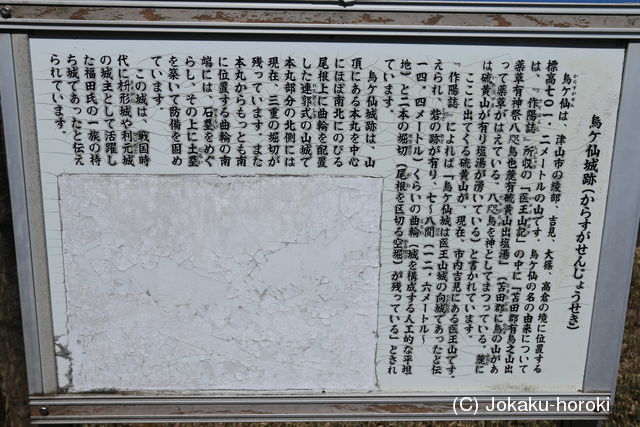 烏ケ仙城跡(からすがせんじょうせき)
烏ケ仙は、津山市の綾部、吉見、大篠、高倉の境に位置する
標高七〇一.二メートルの山です。烏ケ仙の名の由来について
は、『作陽誌』所収の「医王山記」の中に「苫田郡有烏之山出
薬草有神祭八咫烏也麓有硫黄山出塩湯」(苫田郡に烏の山があ
って薬草がはえている。八咫烏を神としてまつっている。麓に
は硫黄山が有り塩湯が湧いている)と書かれています。
ここに出てくる硫黄山が、現在、市内吉見にある医王山です。
『作陽誌』によれば「烏ケ仙城は医王山城の向城であったと伝
えられ、砦の跡が有り、七～八間(一二.六メートル～
一四.四メートル)くらいの曲輪(城を構成する人工的な平坦
地)と二本の堀切(尾根を区切る空堀)が残っている」とされ
ています。
烏ケ仙城跡は、山
頂にある本丸を中心
にほぼ南北にのびる
尾根上に曲輪を配置
した連郭式の山城で
本丸部分の北側には
現在、三重の堀切が
残っています。また
本丸からもっとも南
に位置する曲輪の南
端には、石塁をめぐ
らし、その上に土塁
を築いて防備を固め
ています。
この城は、戦国時
代に枡形城や利元城
の城主として活躍し
た福田氏の一族の持
ち城であったと伝え
られています。
(C) Jokaku-horoki